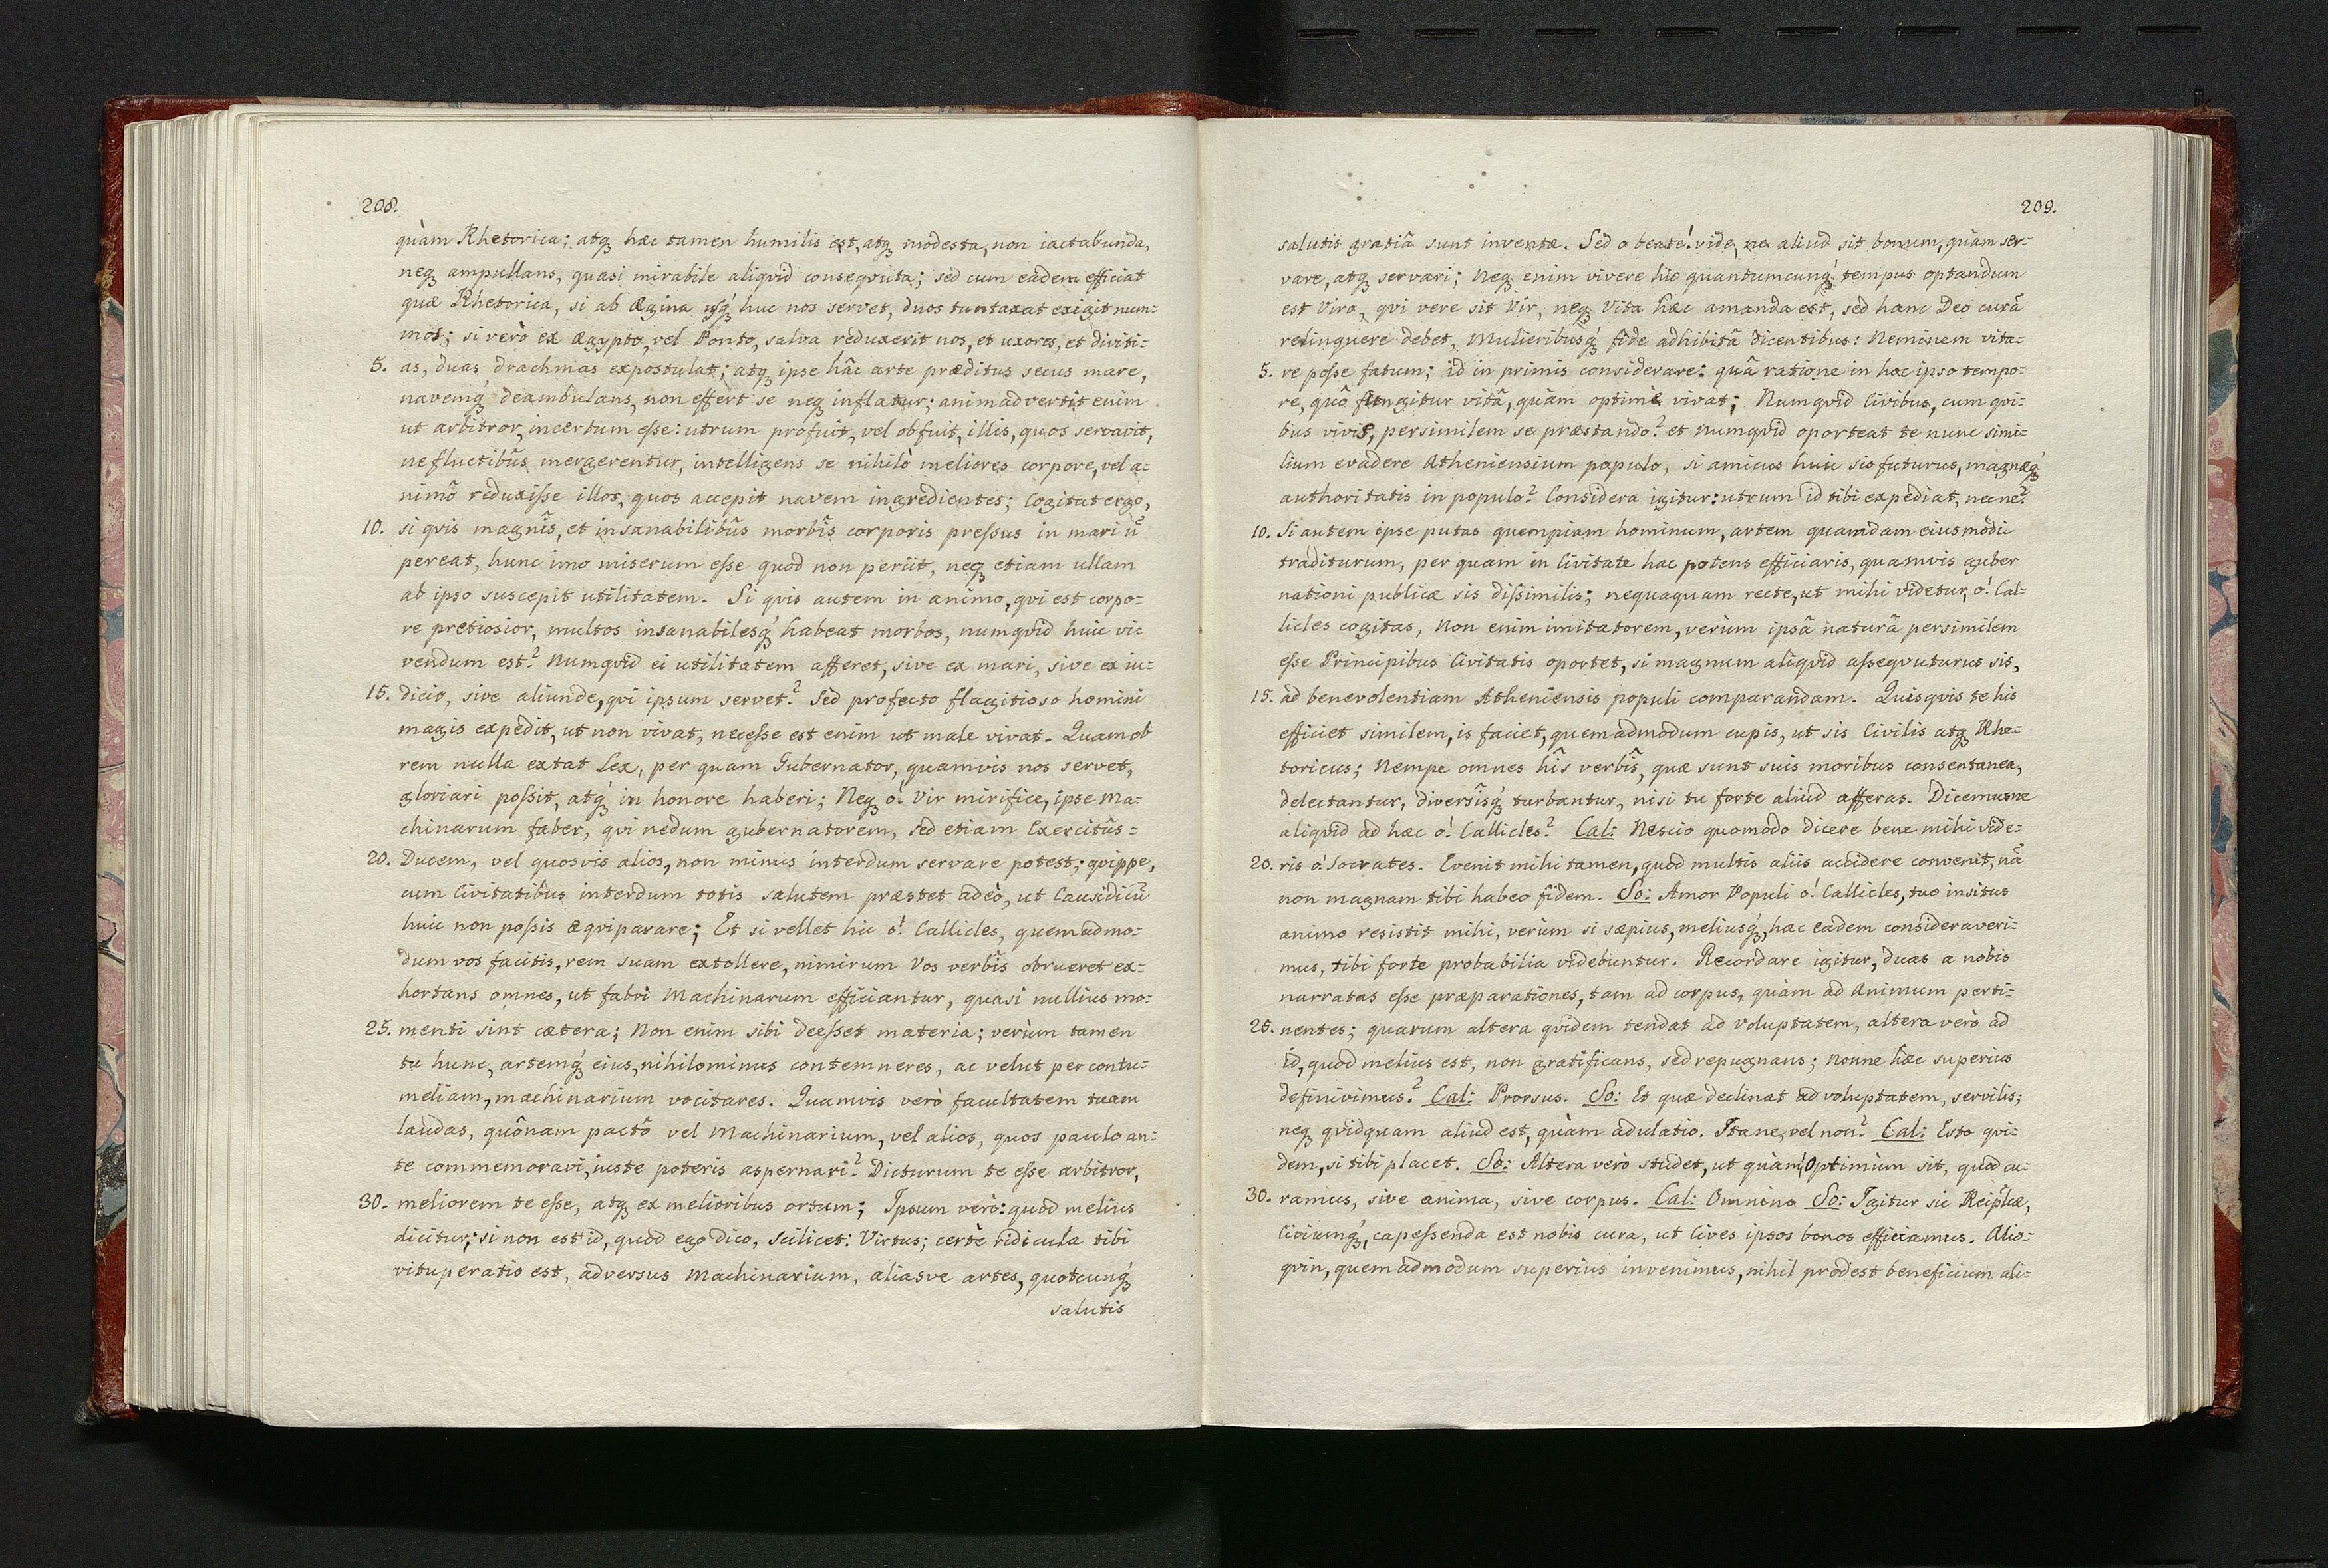 208.
quàm Rhetorica; atq₃ hæc tamen humilis est, atq₃ modesta, non iactabunda,
neq₃ ampullans, quasi mirabile aliqvid conseqvuta; sed cum eadem efficiat
quæ Rhetorica, si ab Ægina usq₃́ huc nos servet, duos tuntaxat exigit num=
mos; si verò ex Ægypto, vel Ponto, salva reduxerit nos, et uxores, et diviti=
5. as, duas drachmas expostulat; atq₃ ipse hâc arte præditus secus mare,
navemq₃́ deambulans, non effert se neq₃ inflatur; animadvertit enim
ut arbitror, incertum esse: utrum profuit, vel obfuit, illis, quos servavit,
ne fluctibûs mergerentur, intelligens se nihilò meliores corpore, vel a=
nimô reduxisse illos, quos accepit navem ingredientes; Cogitat ergo,
10. si qvis magnîs, et insanabilibûs morbîs corporis pressus in mari ū
pereat, hunc imo miserum esse quod non periit, neq₃ etiam ullam
ab ipso suscepit utilitatem. Si qvis autem in animo, qvi est corpo=
re pretiosior, multos insanabilesq₃́ habeat morbos, numqvid huic vi=
vendum est? Numqvid ei utilitatem afferet, sive ex mari, sive ex iu=
15. dicio, sive aliunde, qvi ipsum servet? Sed profecto flagitioso homini
magis expedit, ut non vivat, necesse est enim ut male vivat. Quamob
rem nulla extat Lex, per quam Gubernator, quamvis nos servet,
gloriari possit, atq₃́ in honore haberi; Neq₃ o! Vir mirifice, ipse Ma=
chinarum faber, qvi nedum gubernatorem, sed etiam Exercitûs =
20. Ducem, vel quosvis alios, non minus interdum servare potest; qvippe,
cum Civitatibus interdum totis salutem præstet adeò, ut Causidicū
huic non possis æqviparare; Et si vellet hic o! Callicles, quemadmo=
dum vos facitis, rem suam extollere, nimirum Vos verbîs obrueret ex=
hortans omnes, ut fabri Machinarum efficiantur, quasi nullius mo=
25. menti sint cætera; Non enim sibi deesset materia; verùm tamen
tu hunc, artemq₃́ eius, nihilominus contemneres, ac velut per contu=
meliam, machinarium vocitares. Quamvis verò facultatem tuam
laudas, quônam pactô vel Machinarium, vel alios, quos paulo an=
te commemoravi, iuste poteris aspernari? Dicturum te esse arbitror,
30. meliorem te esse, atq₃ ex melioribus ortum; Ipsum verò: quod melius
dicitur; si non est id, quod ego dico, scilicet: Virtus; certè ridicula tibi
vituperatio est, adversus Machinarium, aliasve artes, quotcunq₃́
salutis
209.
salutis gratiâ sunt inventæ. Sed o beate! vide, ne aliud sit bonum, quàm ser=
vare, atq₃ servari; Neq₃ enim vivere hic quantumcunq₃́ tempus optandum
est Viro, qvi vere sit Vir, neq₃ Vita hæc amanda est, sed hanc Deo curā
relinquere debet, Mulieribusq₃́ fide adhibitâ dicentibus: Neminem vita=
5. re posse fatum; id in primis considerare: quâ ratione in hoc ipso tempo=
re, quô fungitur vitâ, quàm optimè vivat; Numqvid Civibus, cum qvi=
bus vivis, persimilem se præstando? et numqvid oporteat te nunc simi=
lium evadere Atheniensium populo, si amicus huic sis futurus, magnæq₃́
authoritatis in populo? Considera igitur: utrum id tibi expediat, necne?
10. Si autem ipse putas quempiam hominum, artem quamdam eiusmodi
traditurum, per quam in Civitate hac potens efficiaris, quamvis guber
nationi publicæ sis dissimilis; nequaquam recte, ut mihi videtur, o! Cal=
licles cogitas, Non enim imitatorem, verùm ipsâ naturâ persimilem
esse Principibus Civitatis oportet, si magnum aliqvid asseqvuturus sis,
15. ad benevolentiam Atheniensis populi comparandam. Quisqvis te his
efficiet similem, is faciet, quemadmodum cupis, ut sis Civilis atq₃ Rhe=
toricus; Nempe omnes hîs verbîs, quæ sunt suis moribus consentanea,
delectantur, diversîsq₃́ turbantur, nisi tu forte aliud afferas. Dicemusne
aliqvid ad hæc o! Callicles? Cal: Nescio quomodo dicere bene mihi vide=
20. ris o! Socrates. Evenit mihi tamen, quod multis aliis accidere convenit, nā
non magnam tibi habeo fidem. So: Amor Populi o! Callicles, tuo insitus
animo resistit mihi, verùm si sæpius, meliusq₃́, hæc eadem consideraveri=
mus, tibi forte probabilia videbuntur. Recordare igitur, duas a nobis
narratas esse præparationes, tam ad corpus, quàm ad Animum perti=
25. nentes; quarum altera qvidem tendat ad voluptatem, altera verò ad
id, quod melius est, non gratificans, sed repugnans; Nonne hæc superius
definivimus? Cal: Prorsus. So: Et quæ declinat ad voluptatem, servilis;
neq₃ qvidquam aliud est, quàm adulatio. Itane, vel non? Cal: Esto qvi=
dem, si tibi placet. So: Altera verò studet, ut quàm Optimùm sit, quod cu=
30. ramus, sive anima, sive corpus. Cal: Omnino So: Igitur sic Reiplæ,
Civiumq₃́, capessenda est nobis cura, ut Cives ipsos bonos efficiamus. Alio=
qvin, quemadmodum superius invenimus, nihil prodest beneficium ali=